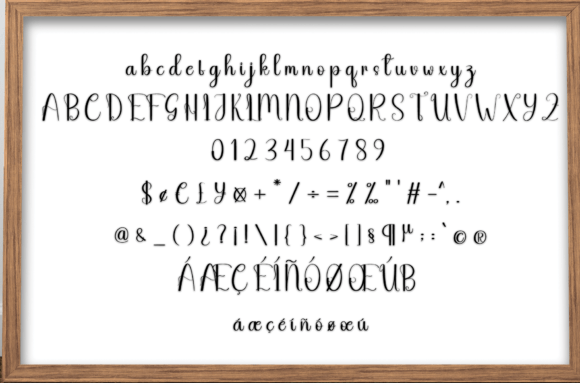 abcdefghijklmnopqrstuvwxyz
ABCDEFGHIJKLMNOPQRSTUVWXYZ
0123456789
$¢€£¥¤+*/÷=%‰"'#-^,.
@&_()¿?¡!\|{}<>[]§¶µ;:`©®
ÁÆÇÉÍÑÓØŒÚẞ
áæçéíñóøœú